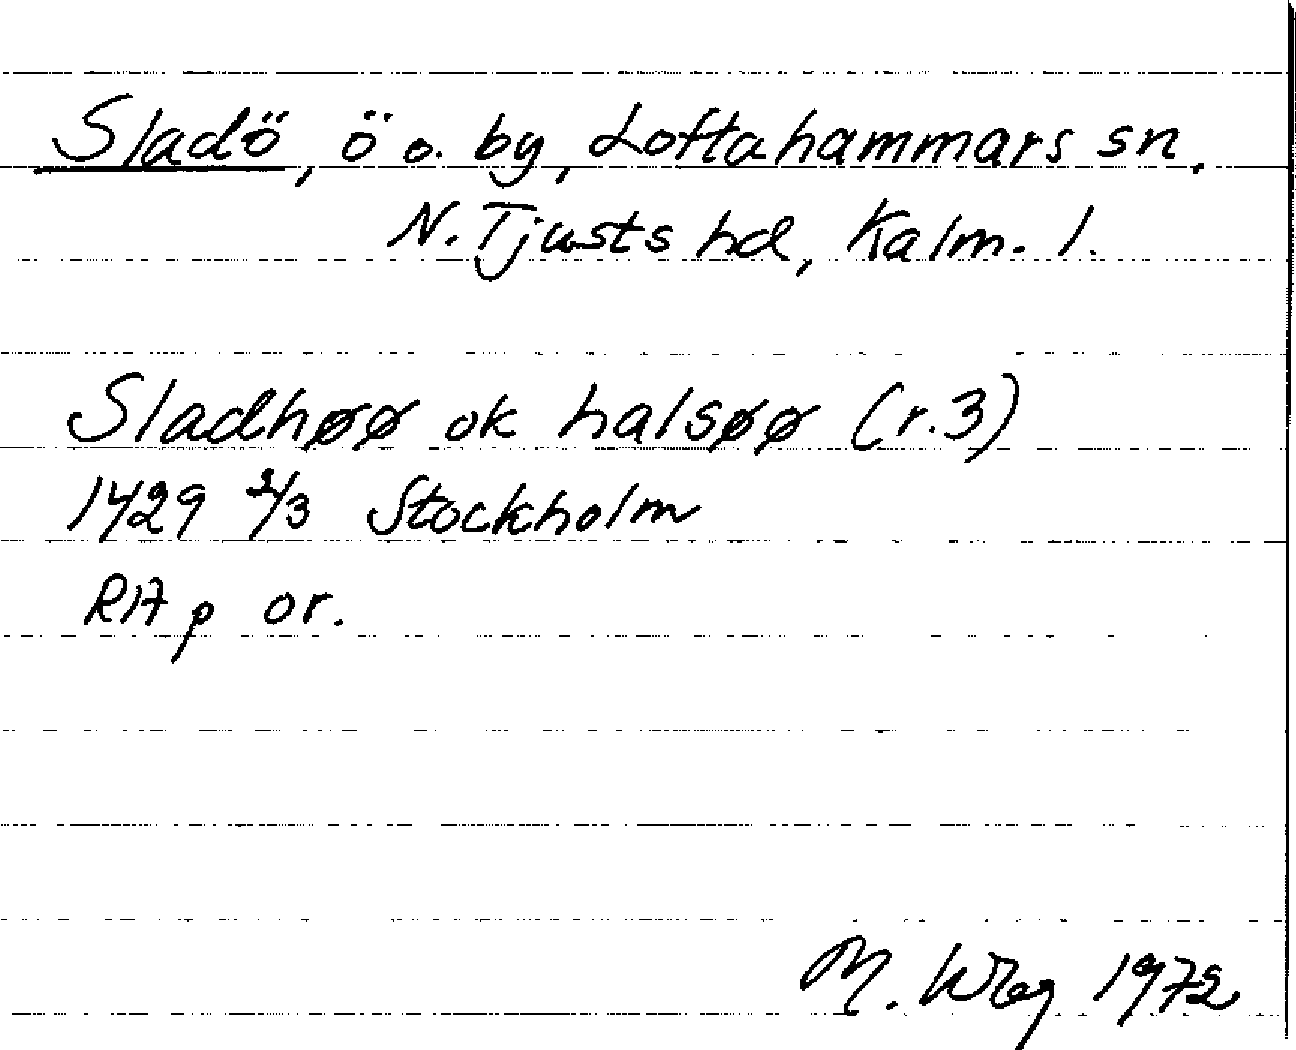 Sladö, ö o. by, Loftahammars sn.
N. Tjusts hd, Kalm. l.
Sladhøø ok halsøø (r.3)
1429 2/3 Stockholm
RA p or.
M. Wbg 1972